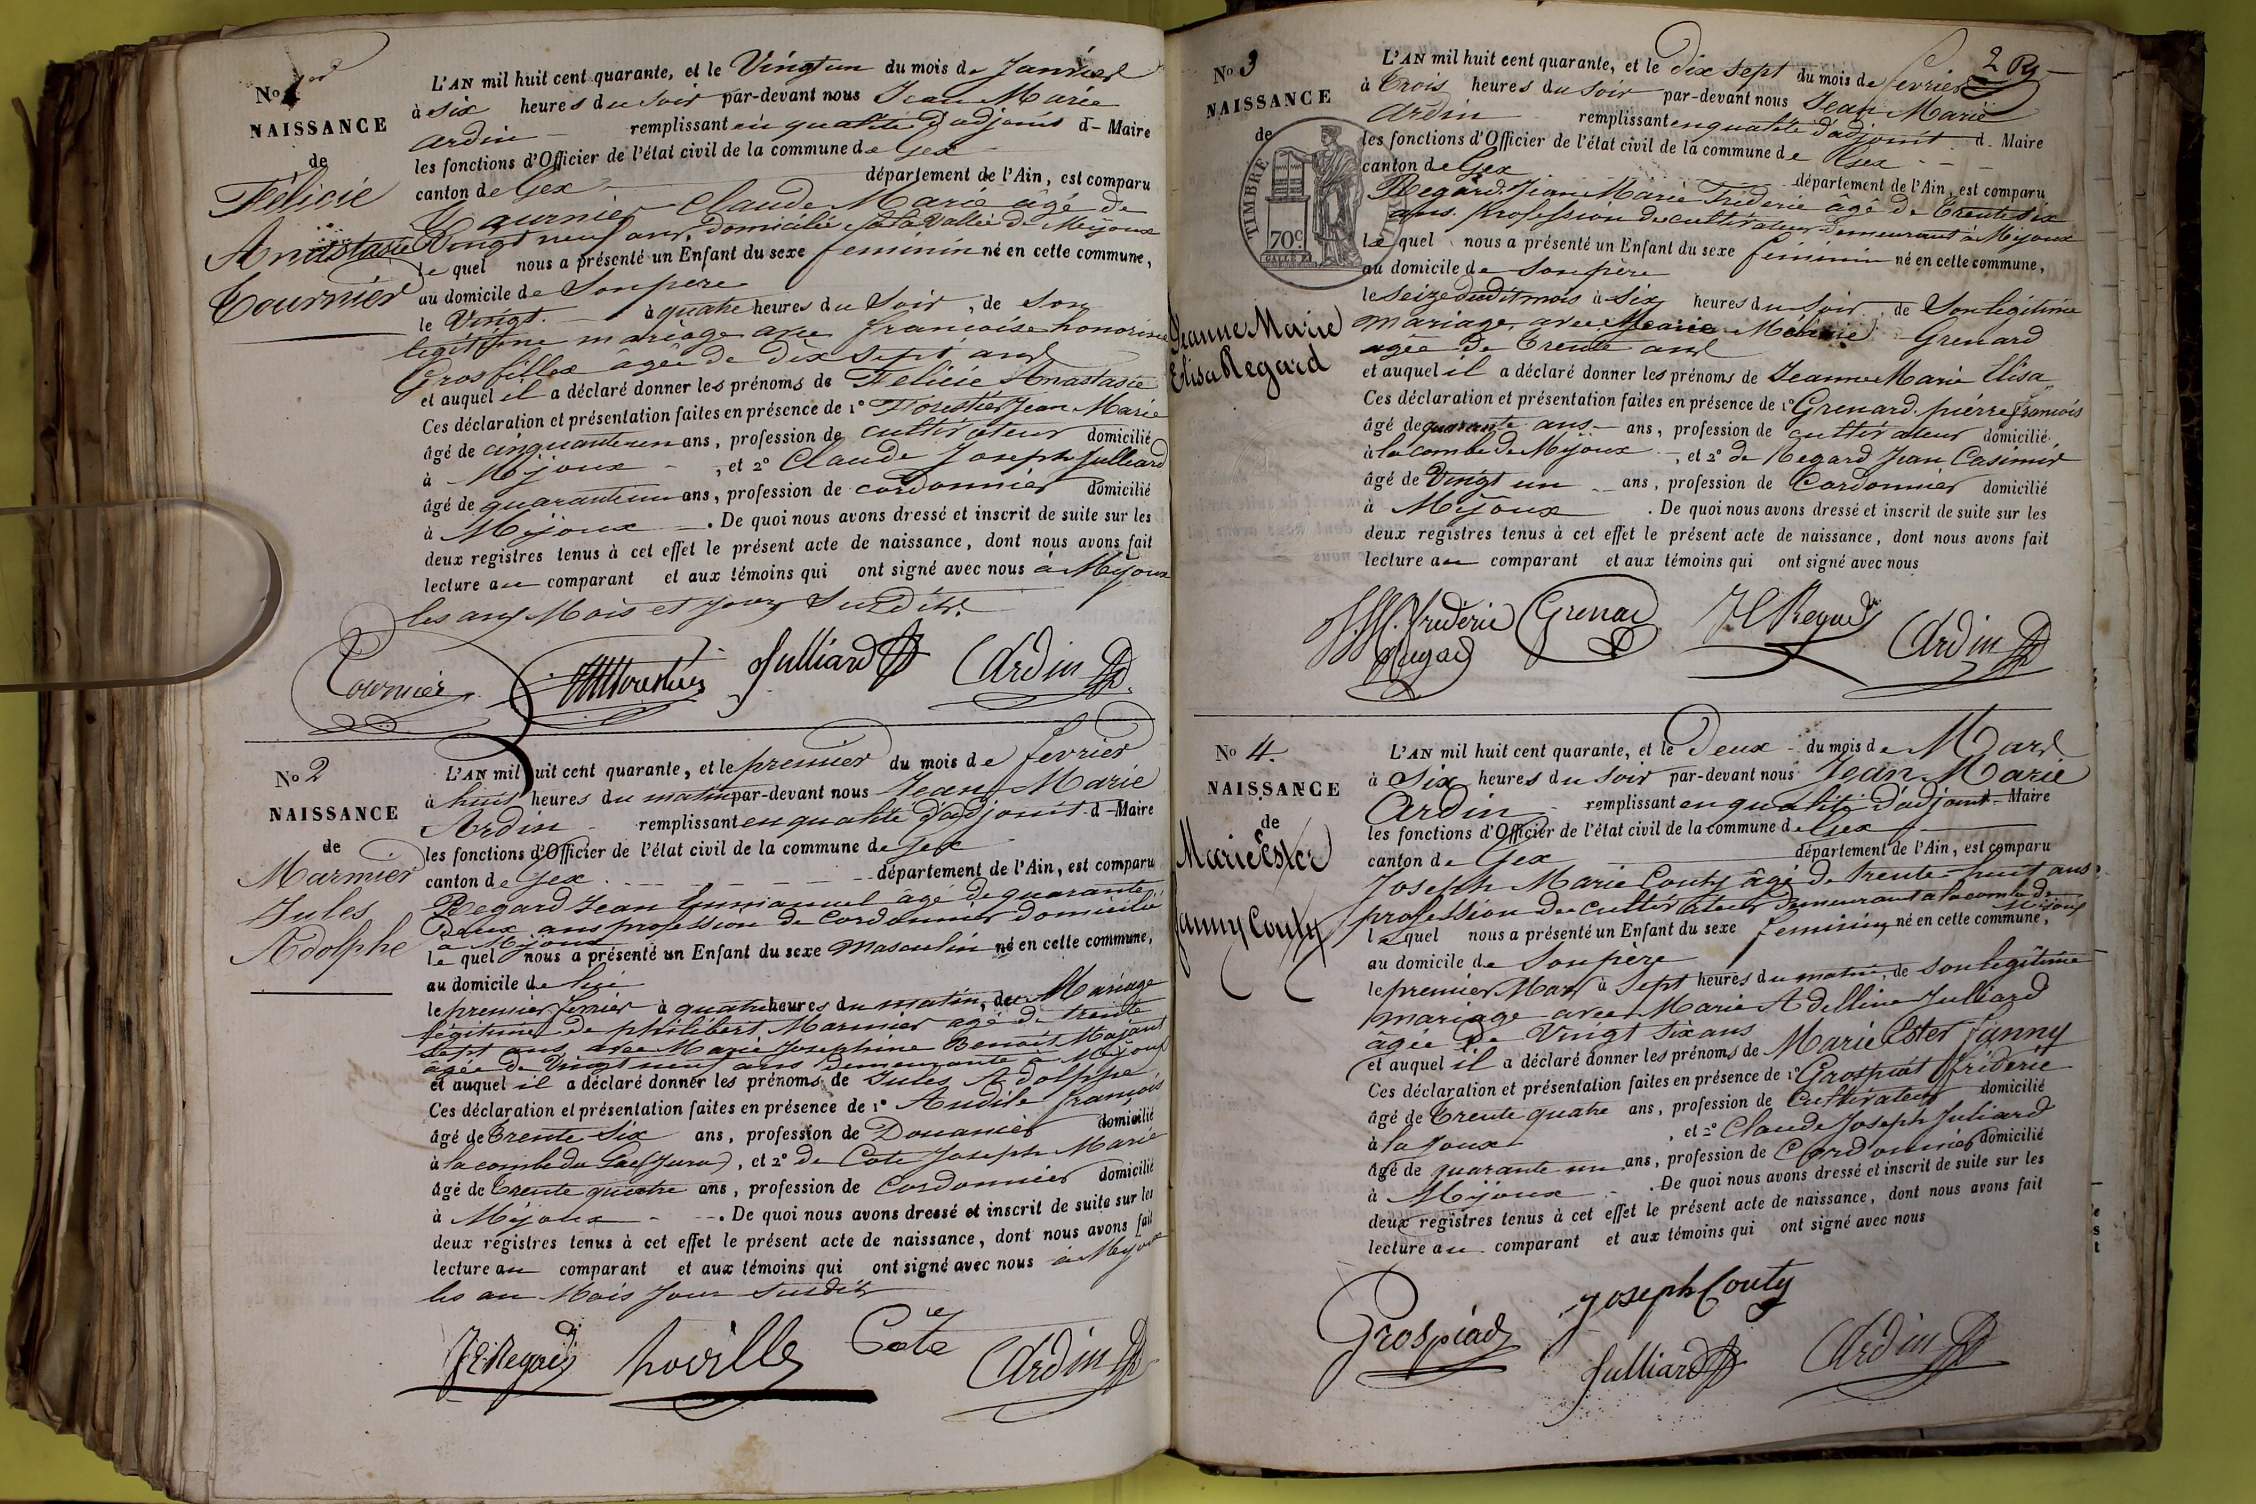 No 1er
NAISSANCE
de
Félicie
Anastasie
Tournier
L'AN mil huit cent quarante, et le Vingt un du mois de Janvier
à six heures du soir par-devant nous Jean Marie
Ardin remplissant en qualité d'adjoint d Maire
les fonctions d'Officier de l'état civil de la commune de Gex
canton de Gex département de l'Ain, est comparu
Tournier Claude Marie âgé de
Vingt neuf ans domicilié à la Vallée de Mijoux
le quel nous a présenté un Enfant du sexe feminin né en cette commune,
au domicile de Son pere
le Vingt à quatre heures du Soir, de Son
legitime mariage avec francoise honorine
Grosfillex âgée de dix sept ans
et auquel il a déclaré donner les prénoms de Félicie Anastasie
Ces déclaration et présentation faites en présence de 1° Forestier Jean Marie
âgé de cinquante un ans, profession de cultivateur domicilié
à Mijoux, et 2° Claude Joseph Julliard
âgé de quarante un ans, profession de cordonnier domicilié
à Mijoux. De quoi nous avons dressé et inscrit de suite sur les
deux registres tenus à cet effet le présent acte de naissance, dont nous avons fait
lecture au comparant et aux témoins qui ont signé avec nous à Mijoux
les ans Mois et jours Susdits.
Tournier Forestier Julliard Ardin
No 2
NAISSANCE
de
Marmier
Jules
Adolphe
L'AN mil huit cent quarante, et le premier du mois de fevrier
à huit heures du matin par-devant nous Jean Marie
Ardin remplissant en qualité d'adjoint d Maire
les fonctions d'Officier de l'état civil de la commune de Gex
canton de Gex département de l'Ain, est comparu
Regard Jean Emmanuel âgé de quarante
Deux ans profession de Cordonnier domicilié
à Mijoux
le quel nous a présenté un Enfant du sexe Masculin né en cette commune,
au domicile de
le premier fevrier à quatre heures du matin, du Mariage
légitime de philibert Marmier agé de trente
sept ans avec Marie Josephine Benoit
âgée de Vingt neuf ans Demeurante à Mijoux
et auquel il a déclaré donner les prénoms de Jules Adolphe
Ces déclaration et présentation faites en présence de 1° françois
âgé de trente six ans, profession de Douanier domicilié
à la combe du Lac (Jura), et 2° de Cote Joseph Marie
âgé de trente quatre ans, profession de Cordonnier domicilié
à Mijoux. De quoi nous avons dressé et inscrit de suite sur les
deux registres tenus à cet effet le présent acte de naissance, dont nous avons fait
lecture au comparant et aux témoins qui ont signé avec nous à Mijoux
les an Mois Jour Susdits
JE Regard Cote Ardin
2
No 3
NAISSANCE
de
TIMBRE
70c.
Jeanne Marie
Elisa Regard
L'AN mil huit cent quarante, et le dix sept du mois de fevrier
à trois heures du Soir par-devant nous Jean Marie
Ardin remplissant en qualité d'adjoint d Maire
les fonctions d'Officier de l'état civil de la commune de Gex
canton de Gex département de l'Ain, est comparu
Regard Jean Marie Frederic âgé de trente six
ans profession de cultivateur Demeurant à Mijoux
le quel nous a présenté un Enfant du sexe feminin né en cette commune,
au domicile de Son père
le Seize dudit mois à Six heures du Soir, de Son légitime
mariage avec Marie Grenard
agée de trente ans
et auquel il a déclaré donner les prénoms de Jeanne Marie Elisa
Ces déclaration et présentation faites en présence de 1° Grenard pierre françois
âgé de quarante ans ans, profession de cultivateur domicilié
à la combe de Mijoux, et 2° de Regard Jean Casimir
âgé de Vingt un ans, profession de Cordonnier domicilié
à Mijoux. De quoi nous avons dressé et inscrit de suite sur les
deux registres tenus à cet effet le présent acte de naissance, dont nous avons fait
lecture au comparant et aux témoins qui ont signé avec nous
frederic Grenard JC Regard Ardin
Regard
No 4.
NAISSANCE
de
Marie Ester
fanny Couty
L'AN mil huit cent quarante, et le Deux du mois de Mars
à Six heures du soir par-devant nous Jean Marie
Ardin remplissant en qualité d'adjoint d Maire
les fonctions d'Officier de l'état civil de la commune de Gex
canton de Gex département de l'Ain, est comparu
Joseph Marie Couty âgé de trente-huit ans
profession de cultivateur Demeurant à la combe de
Mijoux
le quel nous a présenté un Enfant du sexe feminin né en cette commune,
au domicile de Son père
le premier Mars à Sept heures du matin, de Son legitime
mariage avec Marie Adelline Julliard
âgée De Vingt six ans
et auquel il a déclaré donner les prénoms de Marie Ester fanny
Ces déclaration et présentation faites en présence de 1° Grospiat fréderic
âgé de trente quatre ans, profession de Cultivateur domicilié
à la Joux, et 2° Claude Joseph Juliard
âgé de quarante un ans, profession de Cordonnier domicilié
à Mijoux. De quoi nous avons dressé et inscrit de suite sur les
deux registres tenus à cet effet le présent acte de naissance, dont nous avons fait
lecture au comparant et aux témoins qui ont signé avec nous
Joseph Couty
Grospiad Julliard Ardin